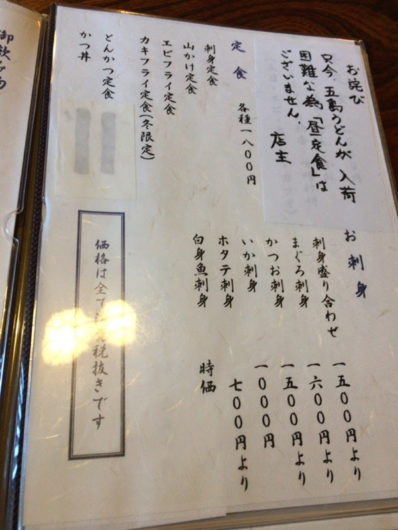 お詫び
只今、五島うどんが入荷
困難な為「昼定食」は
ございません。
店主
定食
各種一八〇〇円
刺身定食
山かけ定食
エビフライ定食
カキフライ定食(冬限定)
とんかつ定食
かつ丼
お刺身
刺身盛り合わせ 一五〇〇円より
まぐろ刺身 一六〇〇円より
かつお刺身 一五〇〇円より
いか刺身 一〇〇〇円
ホタテ刺身 七〇〇円より
白身魚刺身 時価
価格は全て消費税抜きです